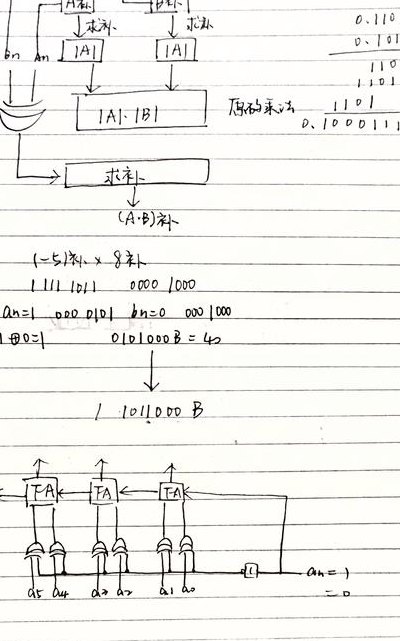 A补 B补
求补 求补
an an
|A| |A|
|A|·|B| 原码乘法
0.110
0.101
110
1101
1101
0.1000111
求补
(A·B)补
(-5)补 × 8补
1111 1011 0000 1000
an=1 000 0101 bn=0 000 1000
1⊕0=1 0101000B = 40
1 1011000 B
FA FA FA
a5 a4 a3 a2 a1 a0 1 an=1
=0